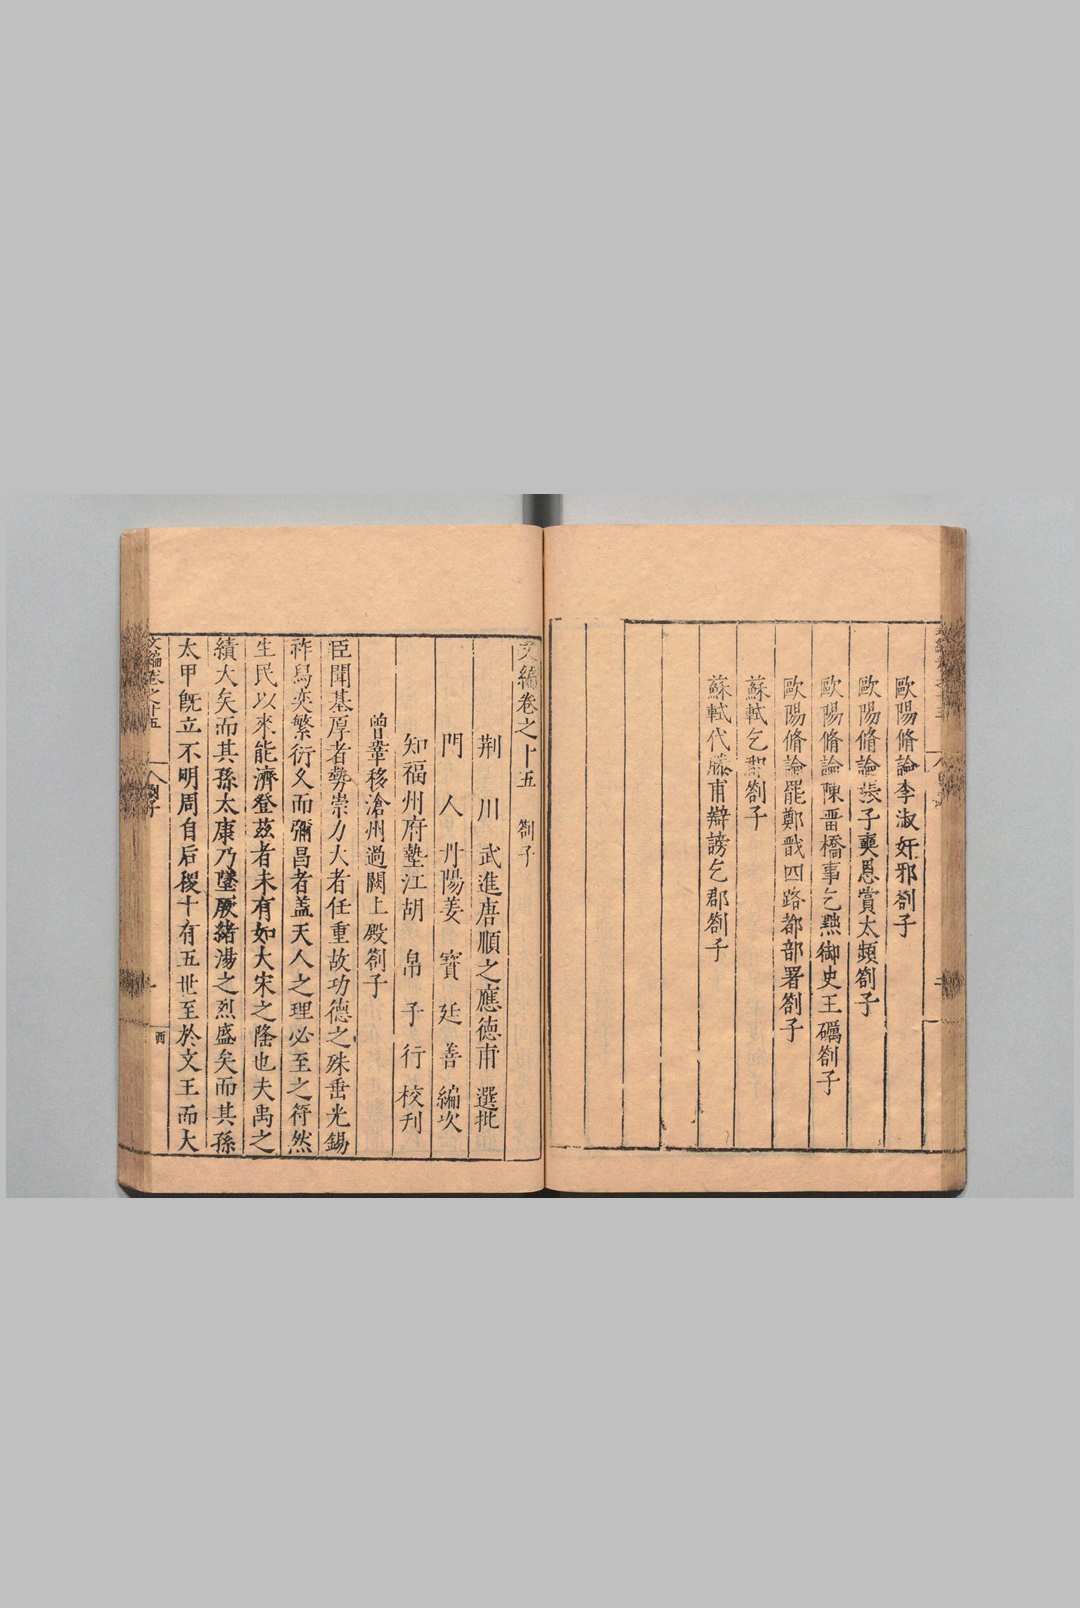 歐陽脩論李淑奸邪劄子
歐陽脩論張子奭恩賞太頻劄子
歐陽脩論陳畱橋事乞㸃御史王礪劄子
歐陽脩論罷鄭戩四路都部署劄子
蘇軾乞郡劄子
蘇軾代滕甫辯謗乞郡劄子
文編卷之十五 劄子
荆川武進唐順之應德甫選批
門人丹陽姜寳廷善編次
知福州府墊江胡帛子行校刊
曾鞏移滄州過闕上殿劄子
臣聞基厚者勢崇力大者任重故功德之殊垂光錫
祚舃奕繁衍久而彌昌者盖天人之理必至之符然
生民以來能濟登茲者未有如大宋之隆也夫禹之
績大矣而其孫太康乃墜厥緒湯之烈盛矣而其孫
太甲旣立不明周自后稷十有五世至於文王而大
文編卷之十五
劄子
一